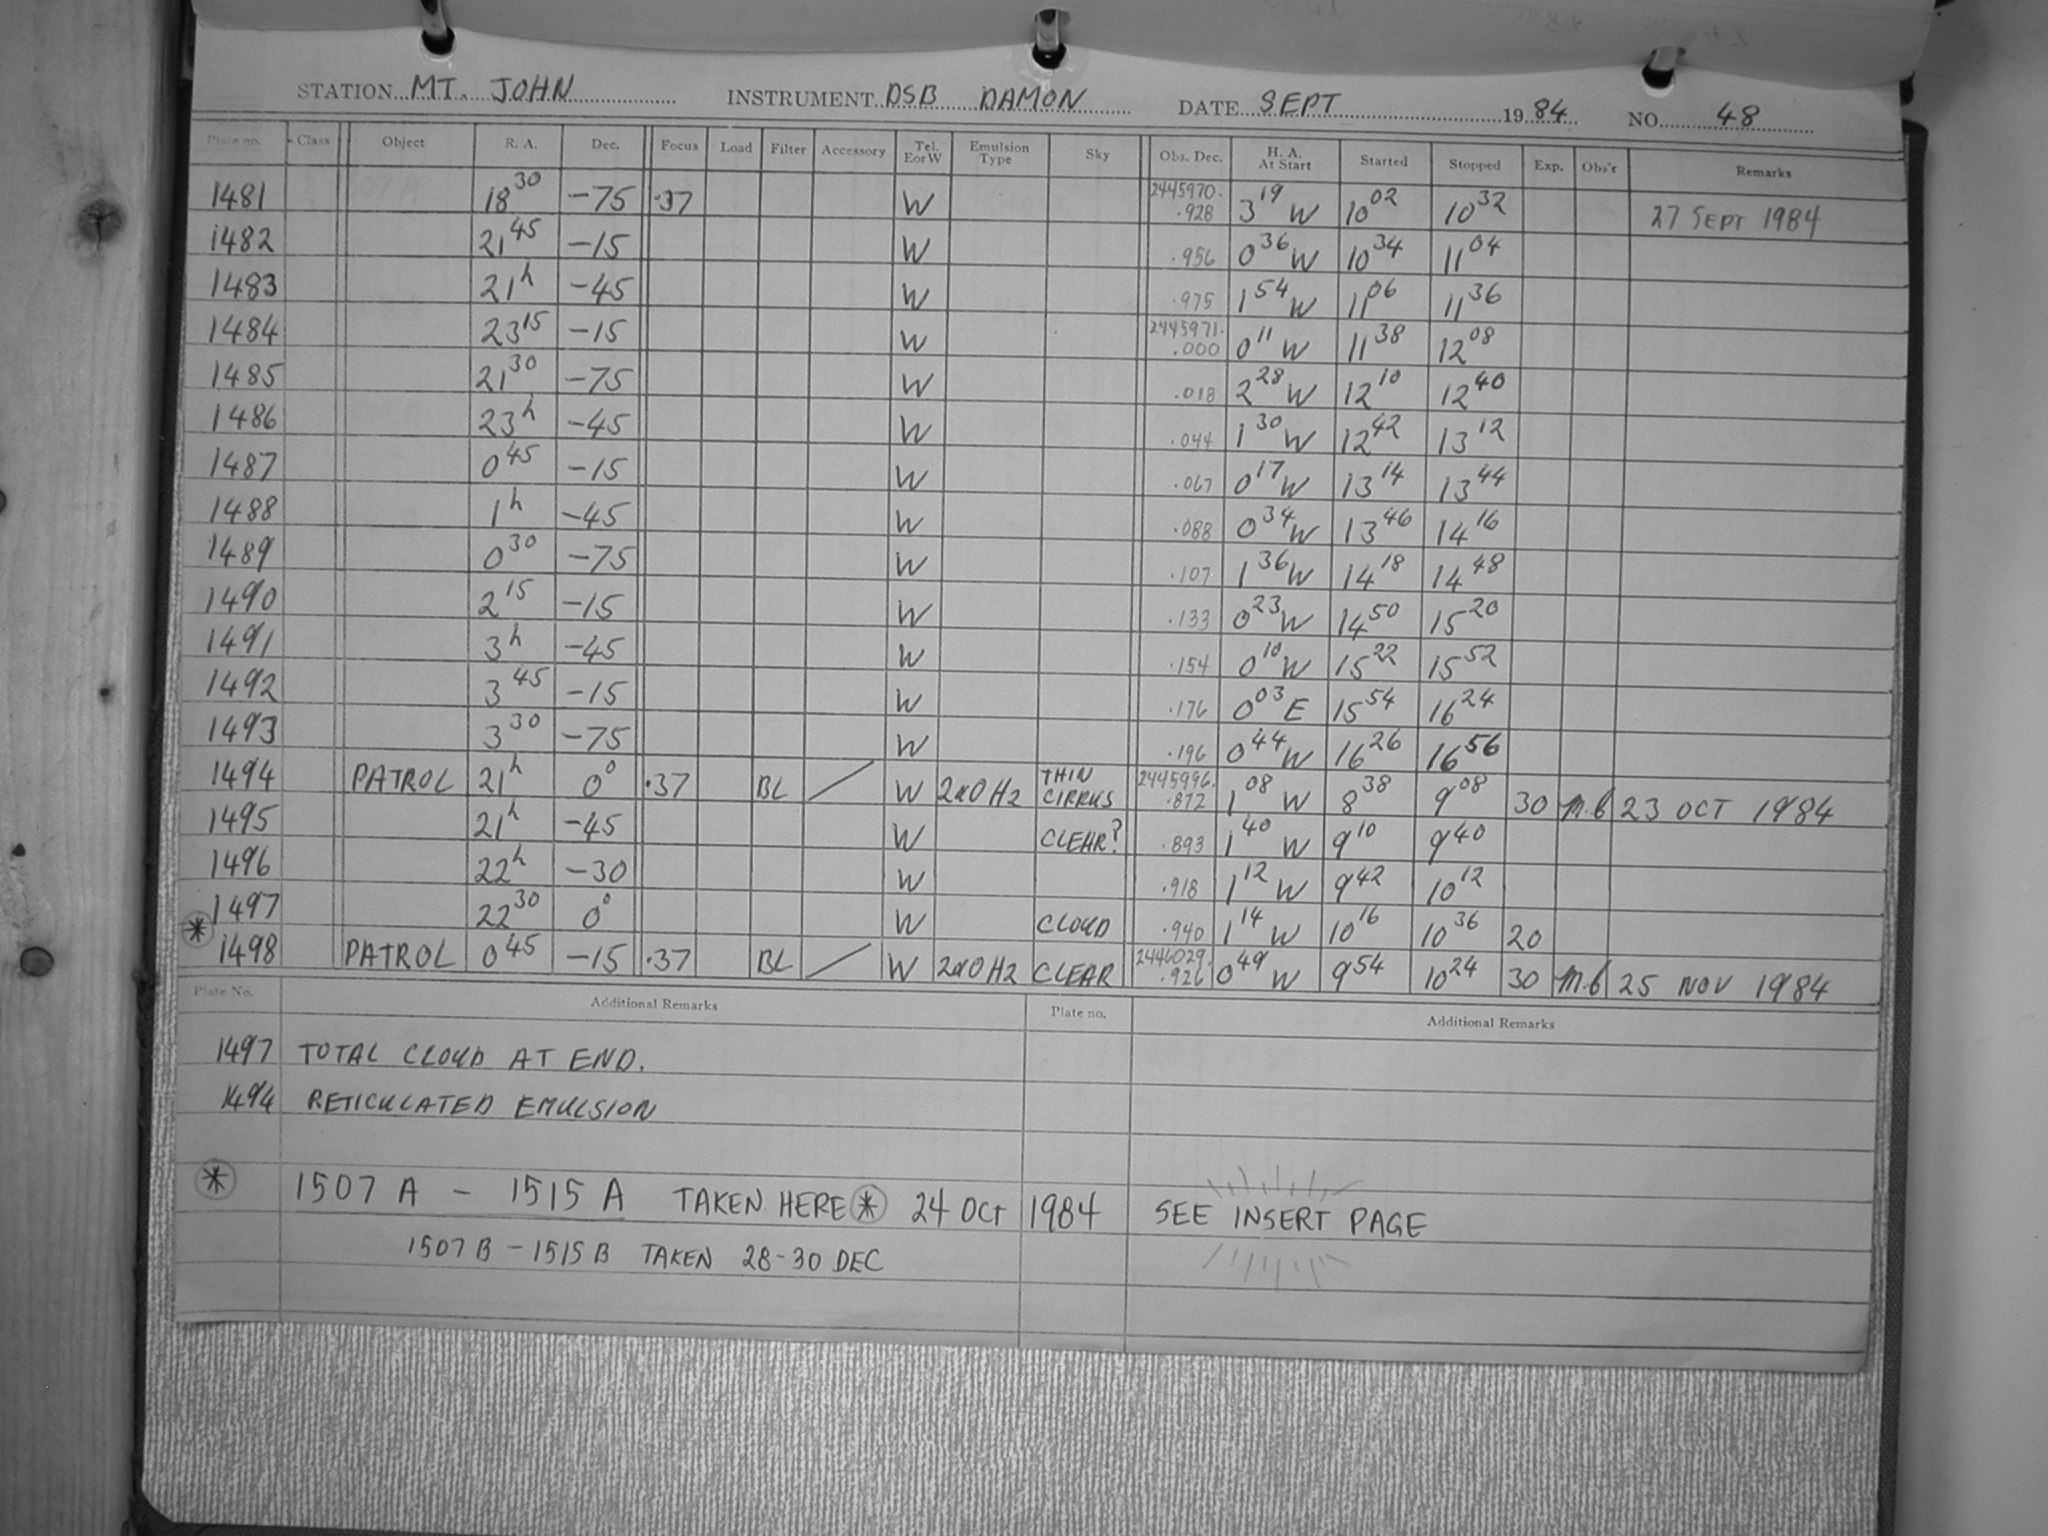 STATION MT. JOHN INSTRUMENT DSB DAMON DATE SEPT 1984 NO. 48
Plate no. Class Object R. A. Dec. Focus Load Filter Accessory Tel. EorW Emulsion Type Sky Obs. Dec. H. A. At Start Started Stopped Exp. Obs'r Remarks
1481 18 30 -75 .37 W 2445970. .928 3 19 W 10 02 10 32 27 SEPT 1984
1482 21 45 -15 W .956 0 36 W 10 34 11 04
1483 21h -45 W .975 1 54 W 11 06 11 36
1484 23 15 -15 W 2445971. .000 0 11 W 11 38 12 08
1485 21 30 -75 W .018 2 28 W 12 10 12 40
1486 23h -45 W .044 1 30 W 12 42 13 12
1487 0 45 -15 W .067 0 17 W 13 14 13 44
1488 1h -45 W .088 0 34 W 13 46 14 16
1489 0 30 -75 W .107 1 36 W 14 18 14 48
1490 2 15 -15 W .133 0 23 W 14 50 15 20
1491 3h -45 W .154 0 10 W 15 22 15 52
1492 3 45 -15 W .176 0 03 E 15 54 16 24
1493 3 30 -75 W .196 0 44 W 16 26 16 56
1494 PATROL 21h 0° .37 BL / W 2aOH2 THIN CIRRUS 2445996. .872 1 08 W 8 38 9 08 30 M.C 23 OCT 1984
1495 21h -45 W CLEAR? .893 1 40 W 9 10 9 40
1496 22h -30 W .918 1 12 W 9 42 10 12
1497 22 30 0° W CLOUD .940 1 14 W 10 16 10 36 20
* 1498 PATROL 0 45 -15 .37 BL / W 2aOH2 CLEAR 2446029. .926 0 49 W 9 54 10 24 30 M.C 25 NOV 1984
Plate No. Additional Remarks Plate no. Additional Remarks
1497 TOTAL CLOUD AT END.
1494 RETICULATED EMULSION
* 1507 A - 1515 A TAKEN HERE * 24 OCT 1984 SEE INSERT PAGE
1507 B - 1515 B TAKEN 28-30 DEC